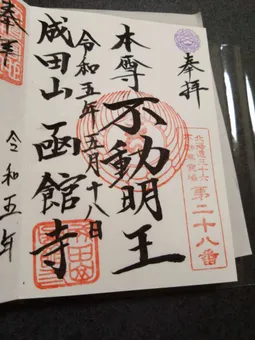 奉拝
北海道三十六
不動尊霊場
第二十八番
本尊不動明王
令和五年五月十八日
成田山函館寺
令和五年